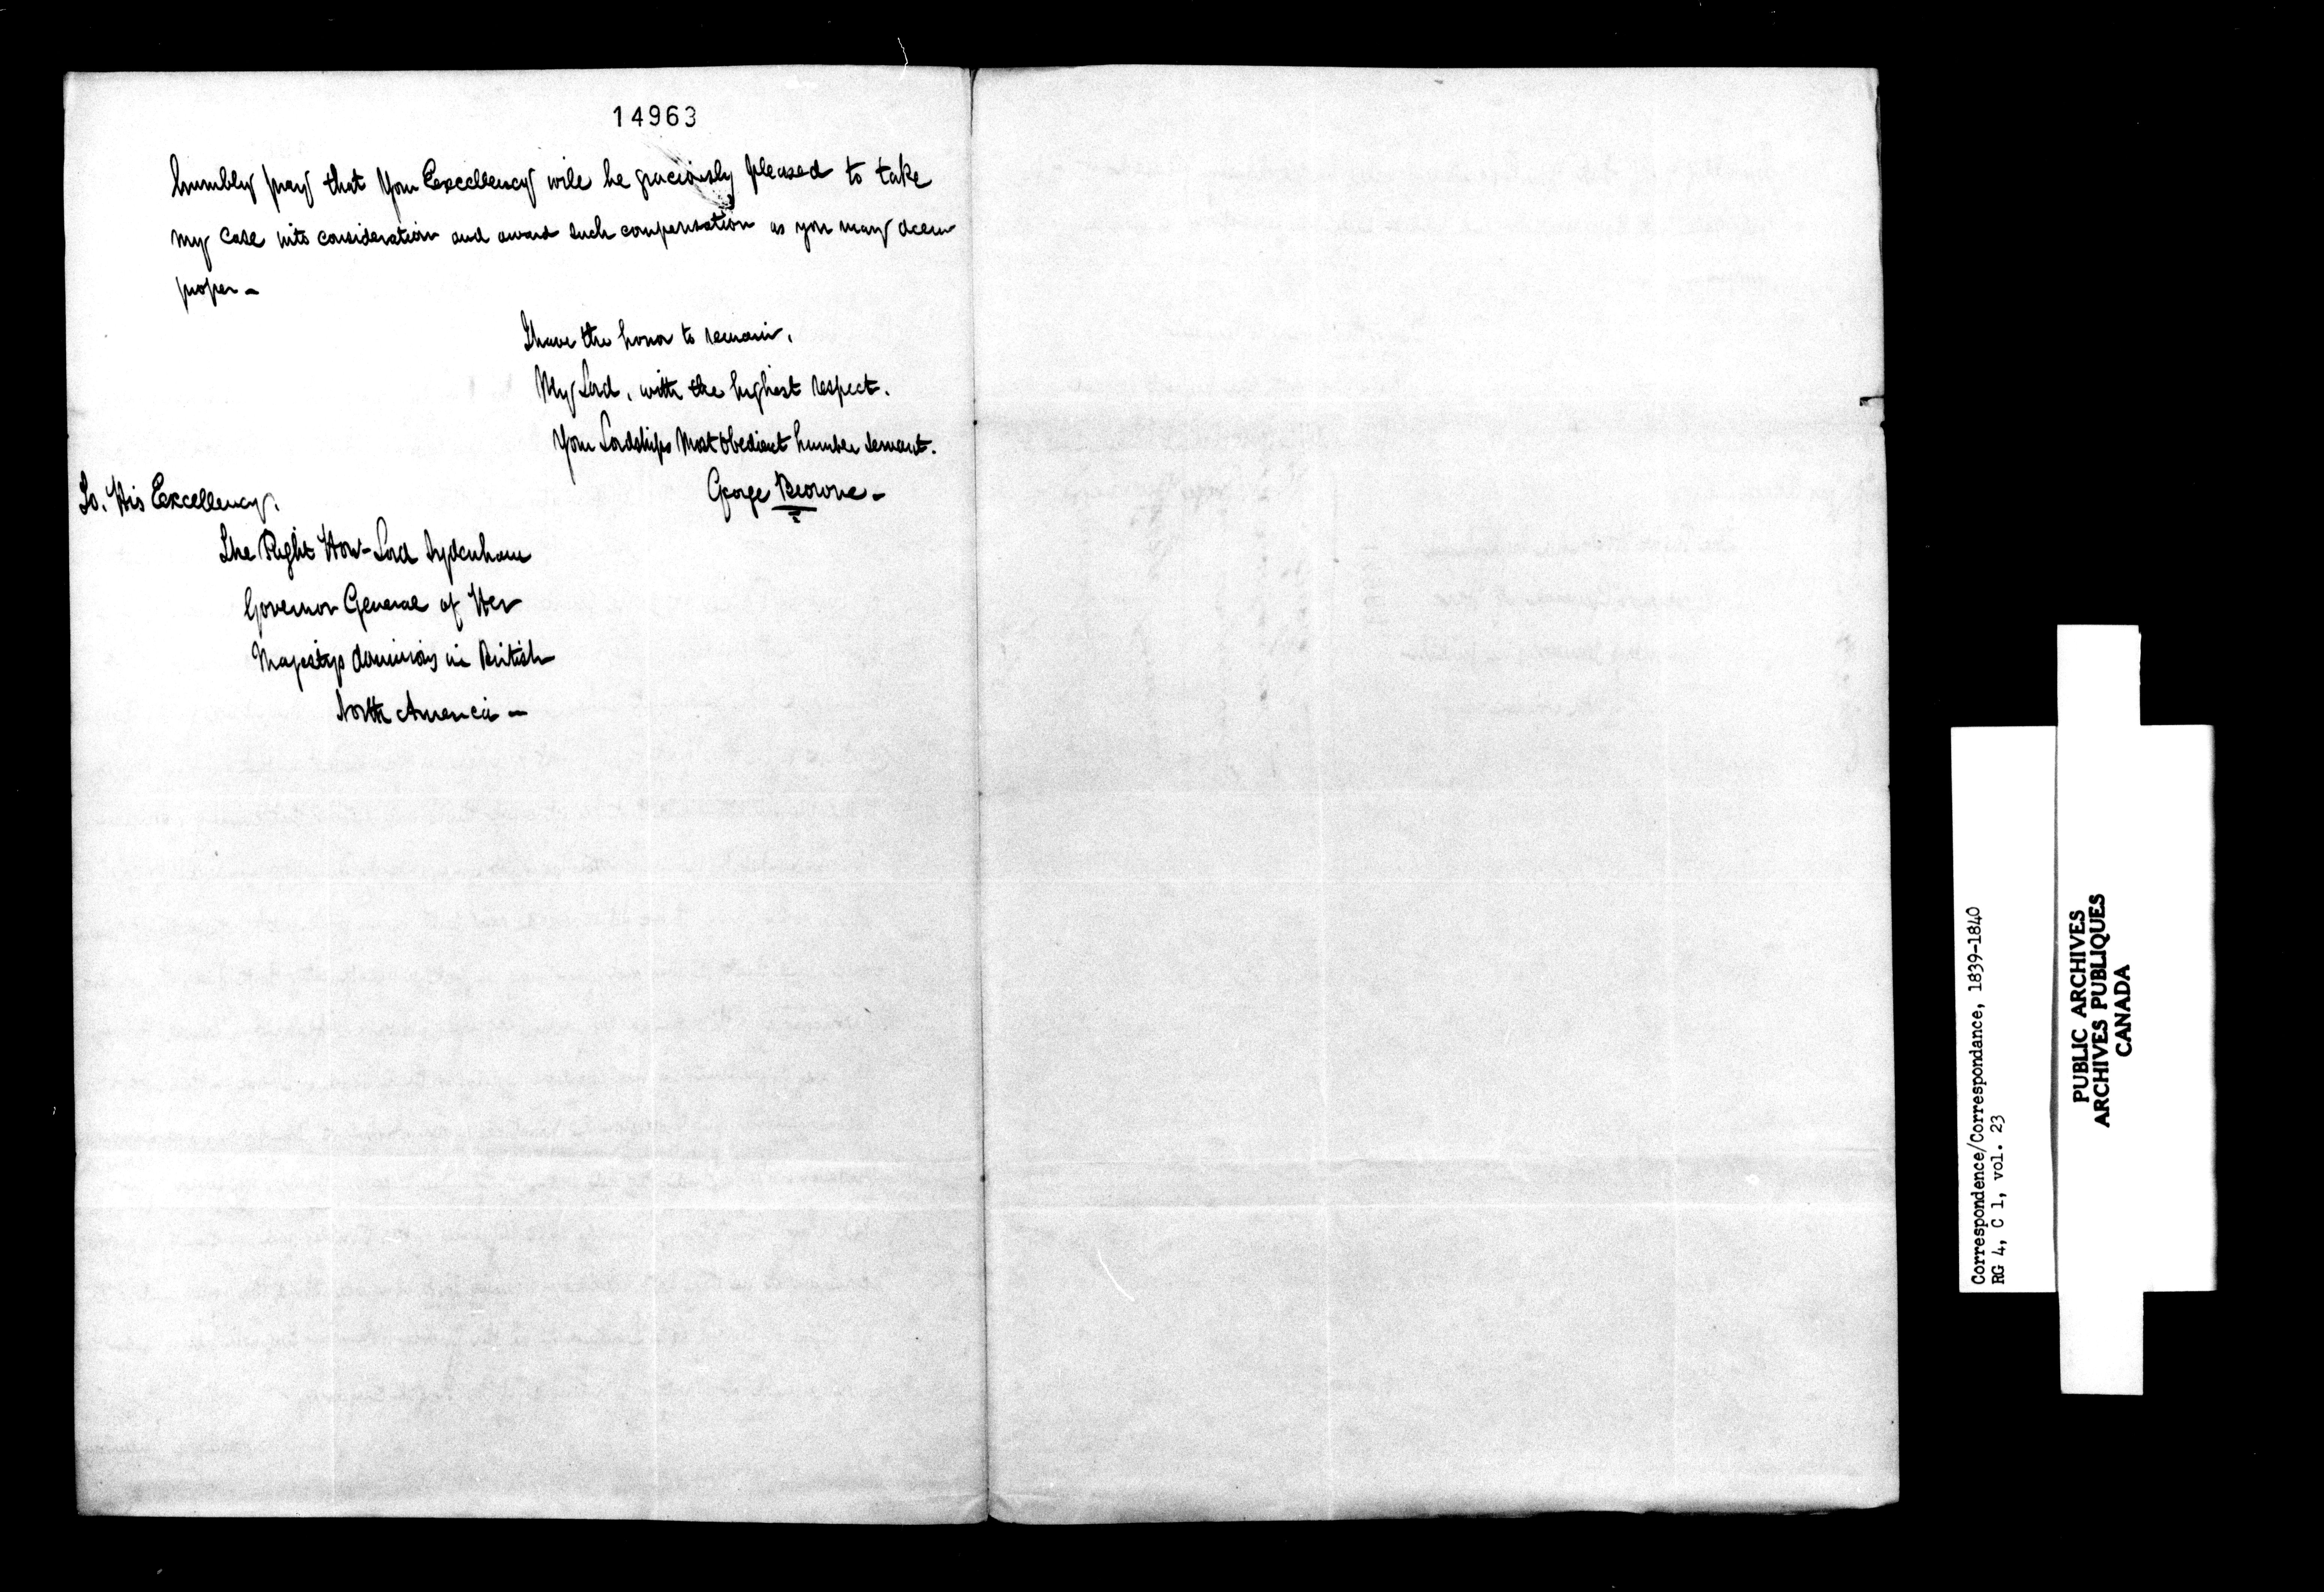 14963
humbly pray that Your Excellency will be graciously pleased to take
my Case into consideration and award such compensation as you may deem
proper -
I have the honor to remain,
My Lord, with the highest respect.
Your Lordships Most Obedient humble Servant.
George Browne -
To, His Excellency,
The Right Hon- Lord Sydenham
Governor General of Her
Majestys dominions in British
North America -
Correspondence/Correspondance, 1839-1840
RG 4, C 1, vol. 23
PUBLIC ARCHIVES
ARCHIVES PUBLIQUES
CANADA